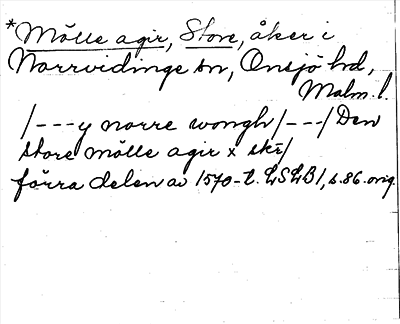 *Mölle agir, Store, åker i
Norrvidinge sn, Onsjö hd,
Malm. l.
/---y norre wongh/---/Den
store mölle agir x skr/
förra delen av 1570-t. LSLB1, s. 86. orig.